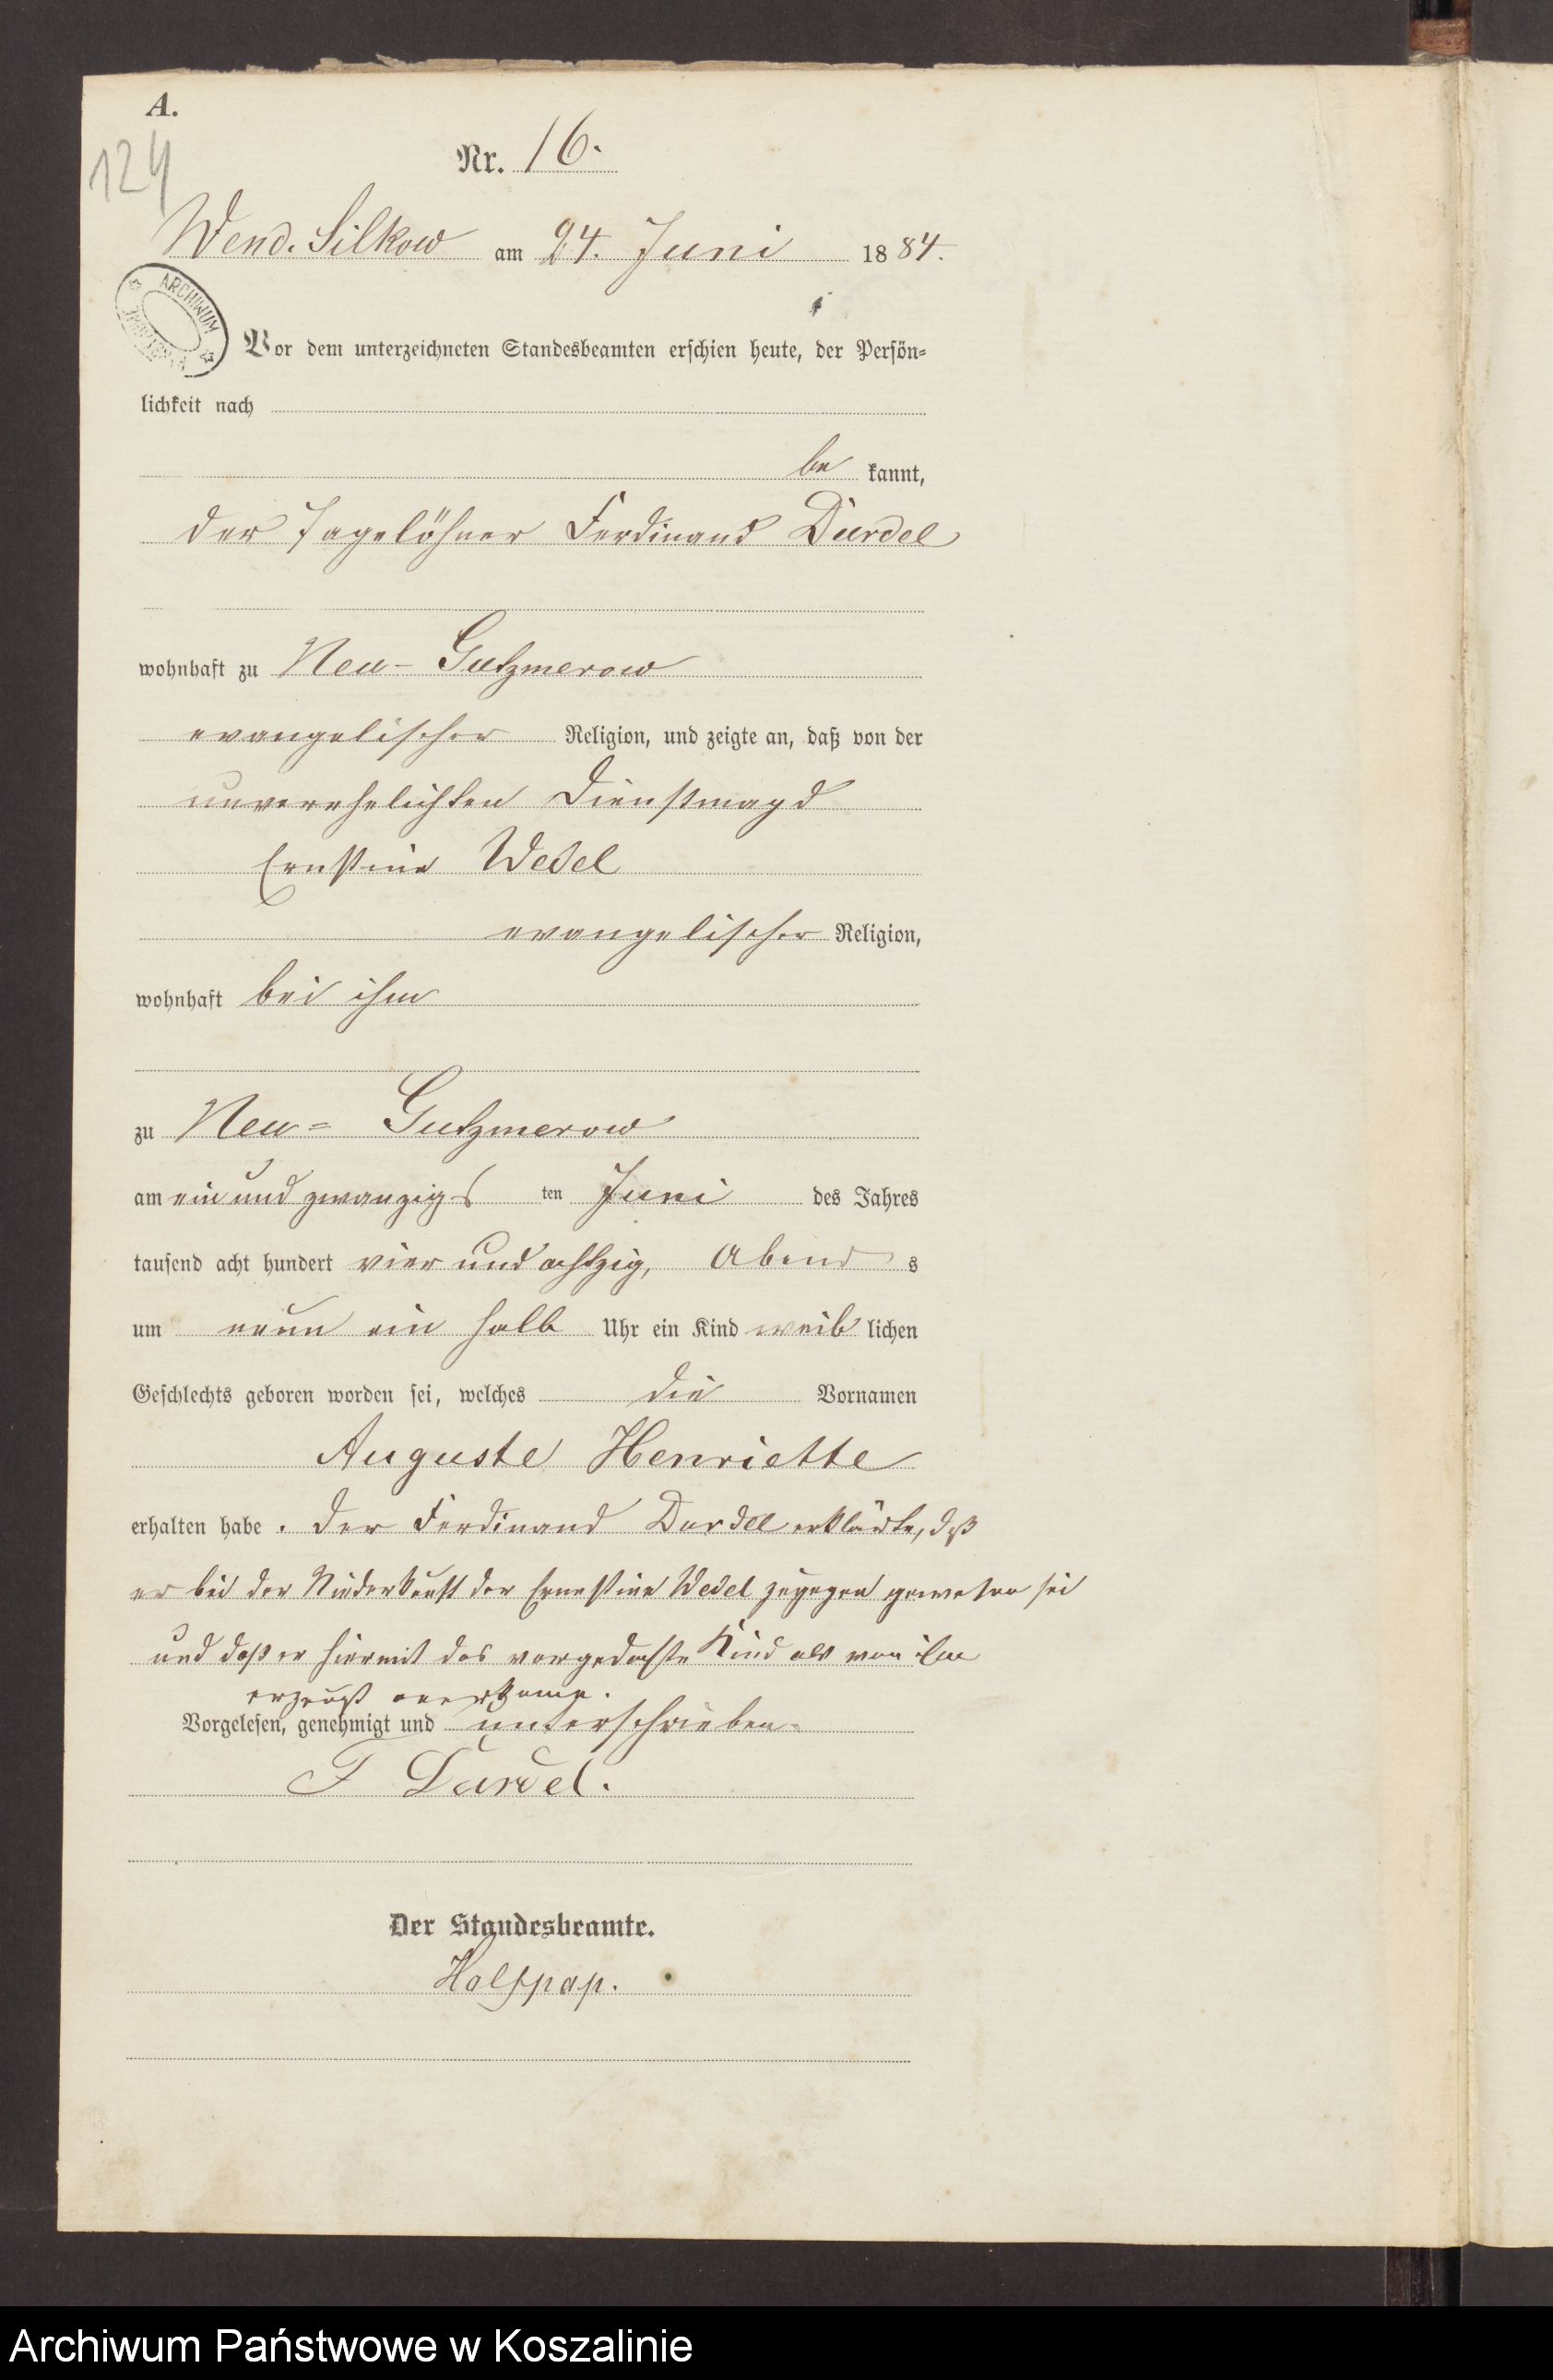 A.
124
Nr. 16.
Wend. Silkow am 24. Juni 1884.
ARCHIWUM
Vor dem unterzeichneten Standesbeamten erschien heute, der Persön-
lichkeit nach
be kannt,
der Tagelöhner Ferdinand Durdel
wohnhaft zu Neu-Gutzmerow
evangelischer Religion, und zeigte an, daß von der
unverehelichten Dienstmagd
Ernstine Wedel
evangelischer Religion,
wohnhaft bei ihm
zu Neu= Gutzmerow
am ein und zwanzigs ten Juni des Jahres
tausend acht hundert vier und achtzig, Abend s
um neun ein halb Uhr ein Kind weib lichen
Geschlechts geboren worden sei, welches die Vornamen
Auguste Henriette
erhalten habe. Der Ferdinand Durdel erklärte, daß
er bei der Niederkunft der Ernestine Wedel zugegen gewesen sei
und daß er hiermit das vorgedachte Kind als von ihm
erzeugt anerkenne.
Vorgelesen, genehmigt und unterschrieben.
F Durdel.
Der Standesbeamte.
Halfpap.
Archiwum Państwowe w Koszalinie